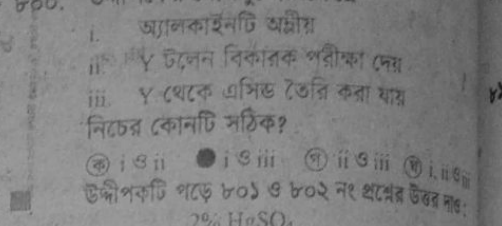 ৮০০.
i. অ্যালকাইনটি অম্লীয়
ii. Y টলেন বিকারক পরীক্ষা দেয়
iii. Y থেকে এসিড তৈরি করা যায়
নিচের কোনটি সঠিক?
ক i ও ii ● i ও iii গ ii ও iii ঘ i, ii ও iii
উদ্দীপকটি পড়ে ৮০১ ও ৮০২ নং প্রশ্নের উত্তর দাও:
2% H₂SO₄